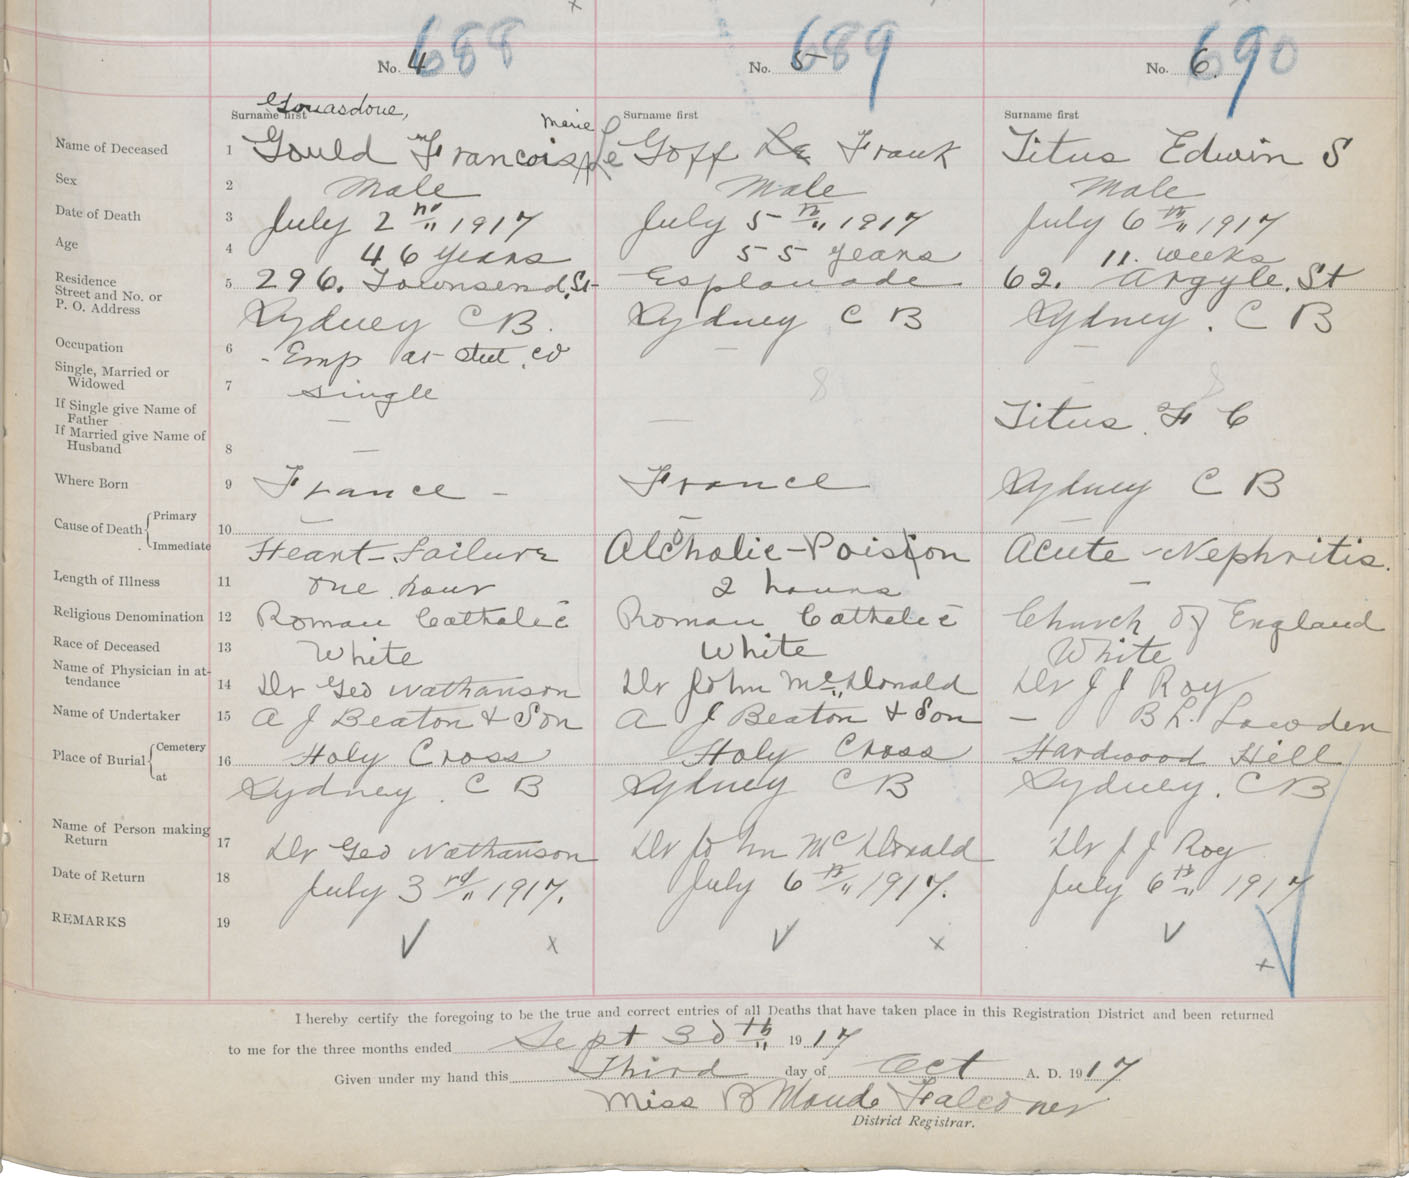 No. 4 688
No. 5 689
No. 6. 690
Surname first
Gouasdoue,
Surname first
Surname first
Name of Deceased 1 Gould Francois Marie Le Goff Frank Titus Edwin S
Sex 2 Male Male Male
Date of Death 3 July 2nd 1917 July 5th 1917 July 6th 1917
Age 4 46 years 55 years 11. weeks
Residence 5 296. Townsend. St Esplanade 62. Argyle. St
Street and No. or
P. O. Address Sydney C B. Sydney C B Sydney. C B
Occupation 6 - Emp at steel. co — —
Single, Married or
Widowed 7 single 8 8
If Single give Name of
Father — — Titus. F C
If Married give Name of
Husband 8 —
Where Born 9 France - France Sydney C B
Cause of Death Primary 10 — — —
Immediate Heart-Failure Alcoholic-Poison Acute-Nephritis.
Length of Illness 11 one hour 2 hours —
Religious Denomination 12 Roman Catholic Roman Catholic Church of England
Race of Deceased 13 White White White
Name of Physician in at-
tendance 14 Dr Geo Nathanson Dr John McDonald Dr J J Roy
Name of Undertaker 15 A J Beaton & Son A J Beaton & Son — B L. Lowden
Place of Burial Cemetery 16 Holy Cross Holy Cross Hardwood Hill
at Sydney. C B Sydney C B Sydney. C B
Name of Person making
Return 17 Dr Geo Nathanson Dr John McDonald Dr J J Roy
Date of Return 18 July 3rd 1917. July 6th 1917. July 6th 1917
REMARKS 19 ✓ x ✓ x ✓ x
I hereby certify the foregoing to be the true and correct entries of all Deaths that have taken place in this Registration District and been returned
to me for the three months ended Sept 30th 1917
Given under my hand this Third day of Oct A. D. 1917
Miss B Maude Falconer
District Registrar.